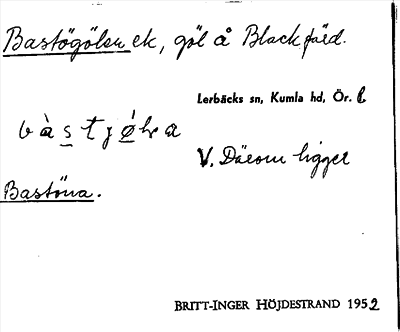 Bastögölen ek, göl å Black fjärd.
Lerbäcks sn, Kumla hd, Ör. l.
V. Därom ligger
Bastöna.
BRITT-INGER HÖJDESTRAND 1952